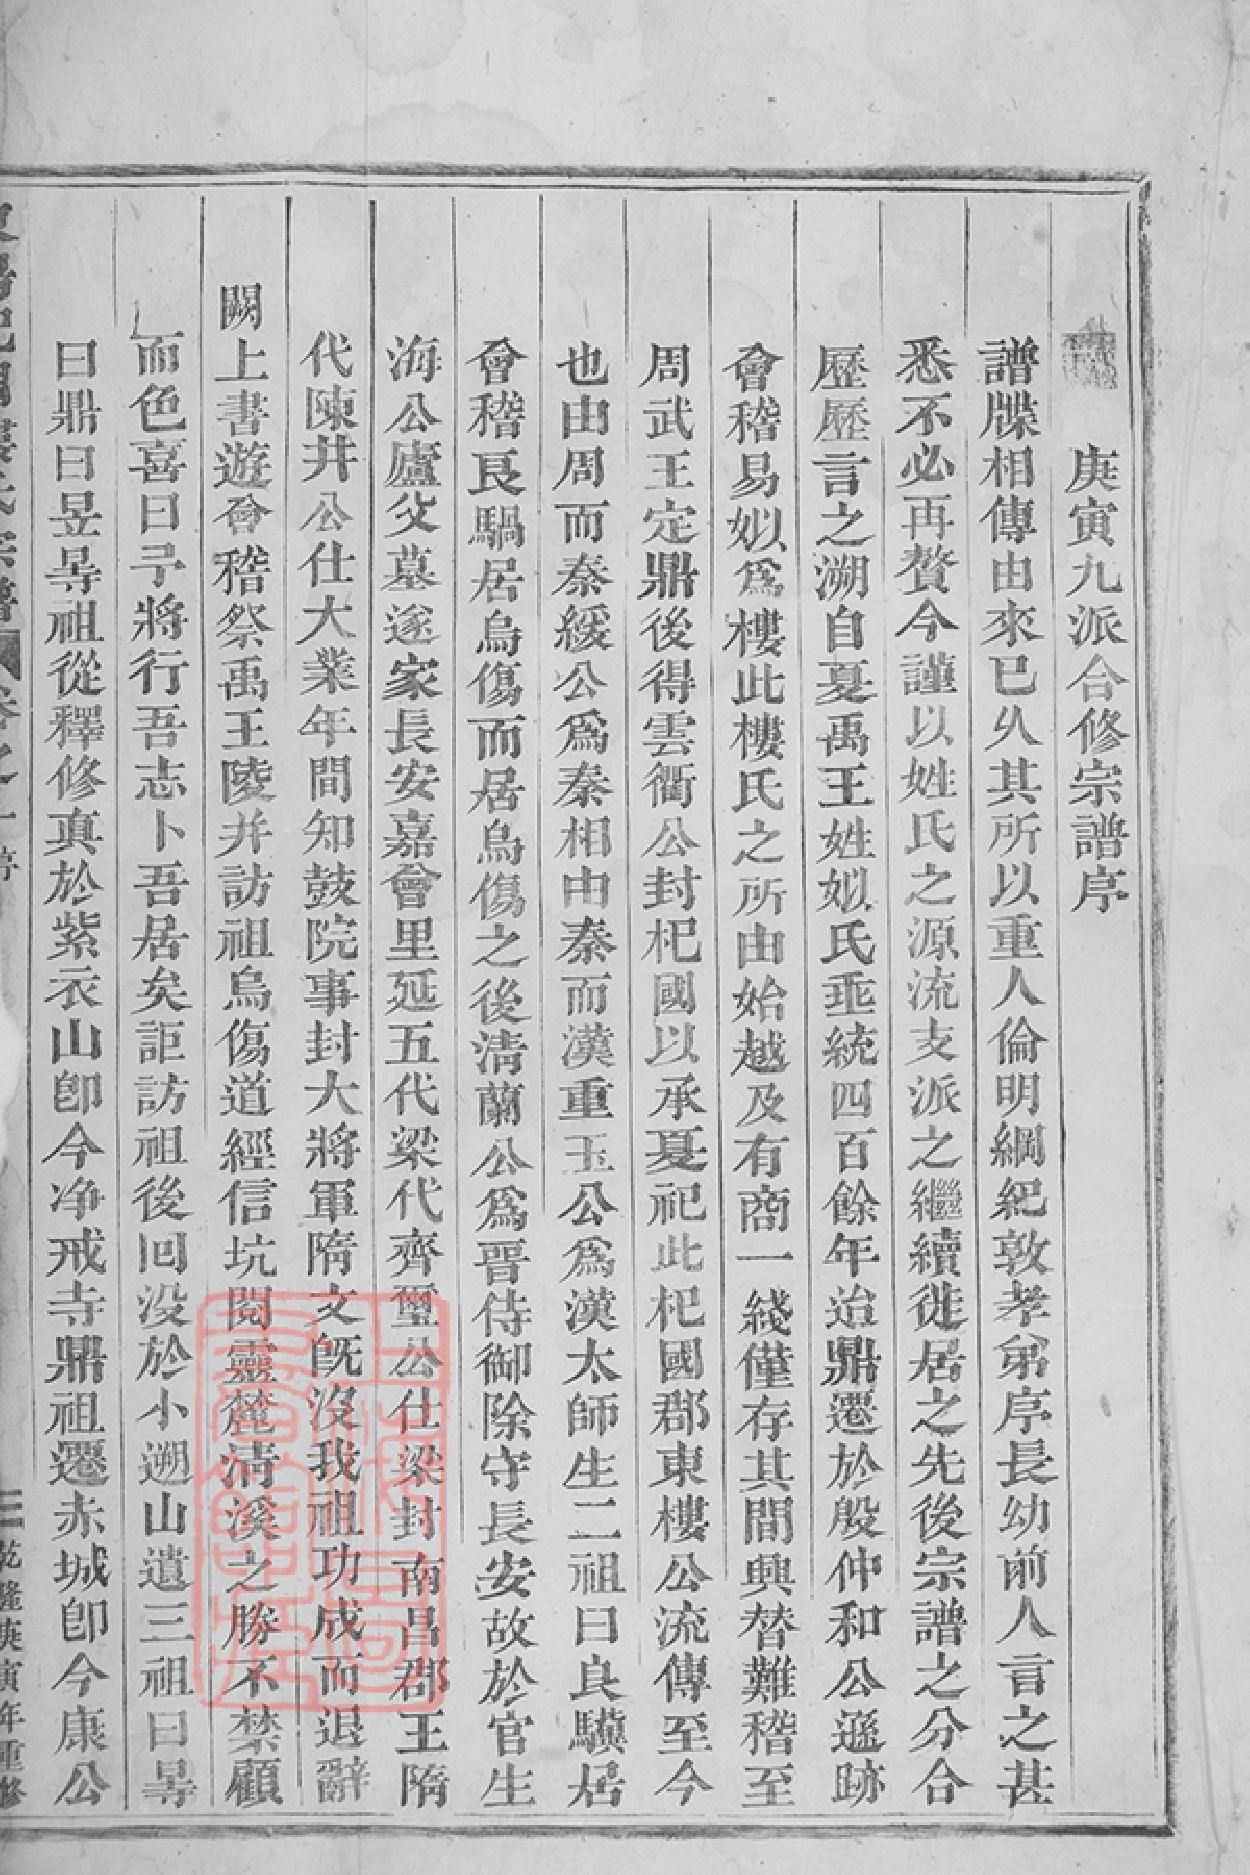 庚寅九派合修宗譜序
譜牒相傳由來已久其所以重人倫明綱紀敦孝弟序長幼前人言之甚
悉不必再贅今謹以姓氏之源流支派之繼續徙居之先後宗譜之分合
歷歷言之溯自夏禹王姓姒氏垂統四百餘年迨鼎遷於殷仲和公遜跡
會稽易姒爲樓此樓氏之所由始越及有商一綫僅存其間興替難稽至
周武王定鼎後得雲衢公封杞國以承夏祀此杞國郡東樓公流傳至今
也由周而秦綬公爲秦相由秦而漢重玉公爲漢太師生二祖曰良驥居
會稽良騧居烏傷而居烏傷之後淸蘭公爲晉侍御除守長安故於官生
海公廬父墓遂家長安嘉會里延五代梁代齊璽公仕梁封南昌郡王隋
代陳井公仕大業年間知鼓院事封大將軍隋文旣沒我祖功成而退辭
闕上書遊會稽祭禹王陵并訪祖烏傷道經信坑閱靈麓淸溪之勝不禁顧
而色喜曰予將行吾志卜吾居矣詎訪祖後回没於小遡山遺三祖曰晷
曰鼎曰昱晷祖從釋修眞於紫衣山卽今净戒寺鼎祖遷赤城卽今康公
宗譜 卷之一 序 三 乾隆 寅年重修